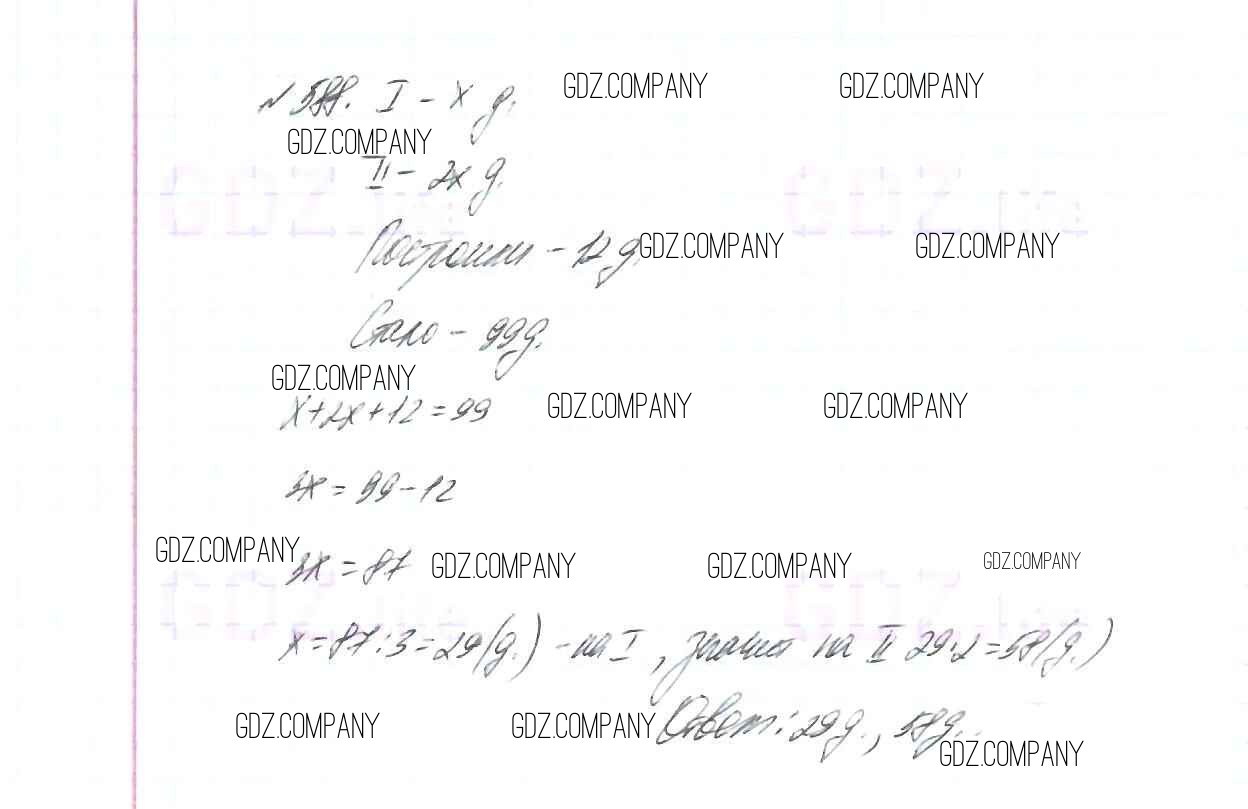 № 588. I - x д. GDZ.COMPANY GDZ.COMPANY
GDZ.COMPANY
II - 2x д.
GDZ.ltd GDZ.ltd
Построили - 12 д. GDZ.COMPANY GDZ.COMPANY
Стало - 99 д.
GDZ.COMPANY
x+2x+12=99 GDZ.COMPANY GDZ.COMPANY
3x = 99-12
GDZ.COMPANY
3x = 87 GDZ.COMPANY GDZ.COMPANY GDZ.COMPANY
x=87:3=29(д.) - на I, значит на II 29·2=58(д.)
GDZ.COMPANY GDZ.COMPANY Ответ: 29 д., 58 д.
GDZ.COMPANY